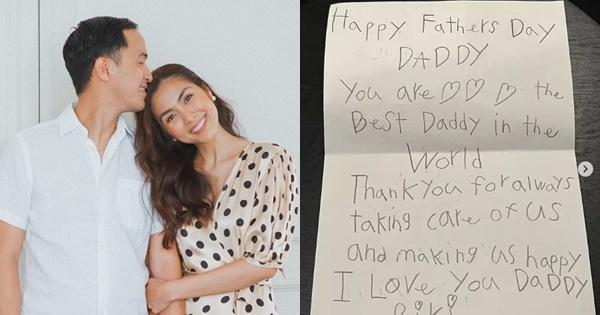 Happy Fathers Day
DADDY
You are ♡♡♡ the
BesT Daddy in the
World
Thankyou for always
taking care of us
and making us happy
I Love You DaDDY